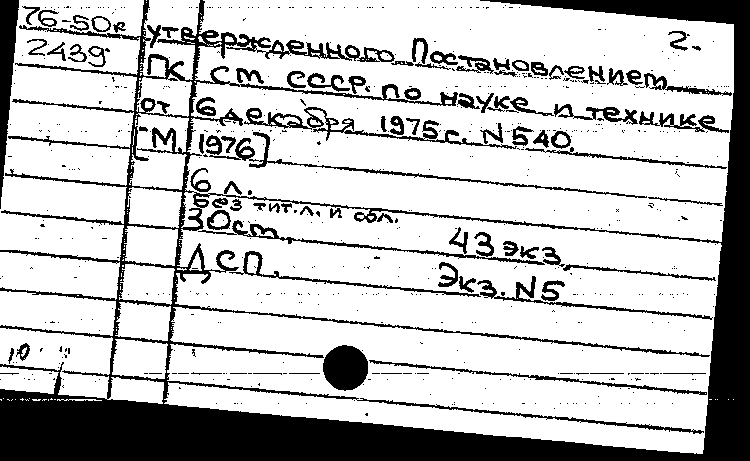 76-50к
2439
2.
утвержденного Постановлением
ГК СМ СССР по науке и технике
от 6 декабря 1975 г. N 540.
[М. 1976]
6 л.
без тит.л. и обл.
30 ст.,
43 экз.,
ДСП.
Экз. N5
10